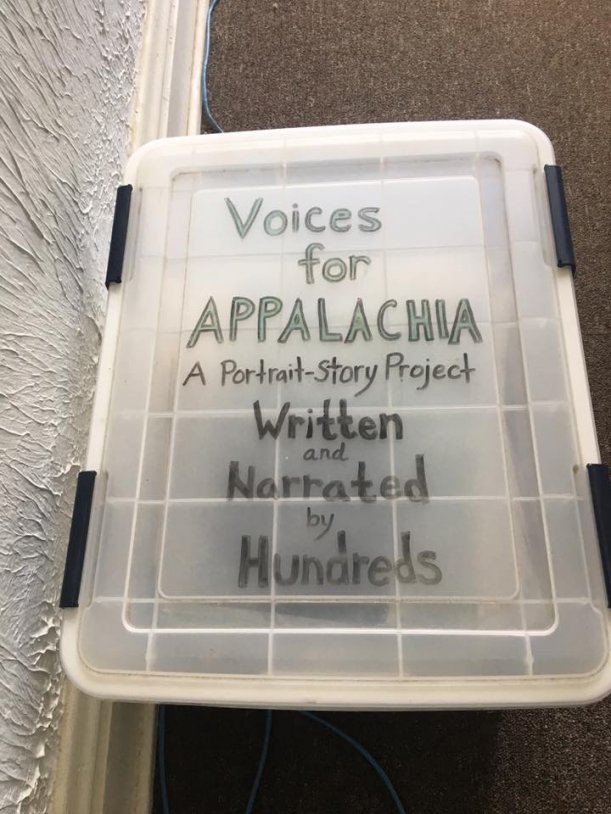 Voices
for
APPALACHIA
A Portrait-Story Project
Written
and
Narrated
by
Hundreds